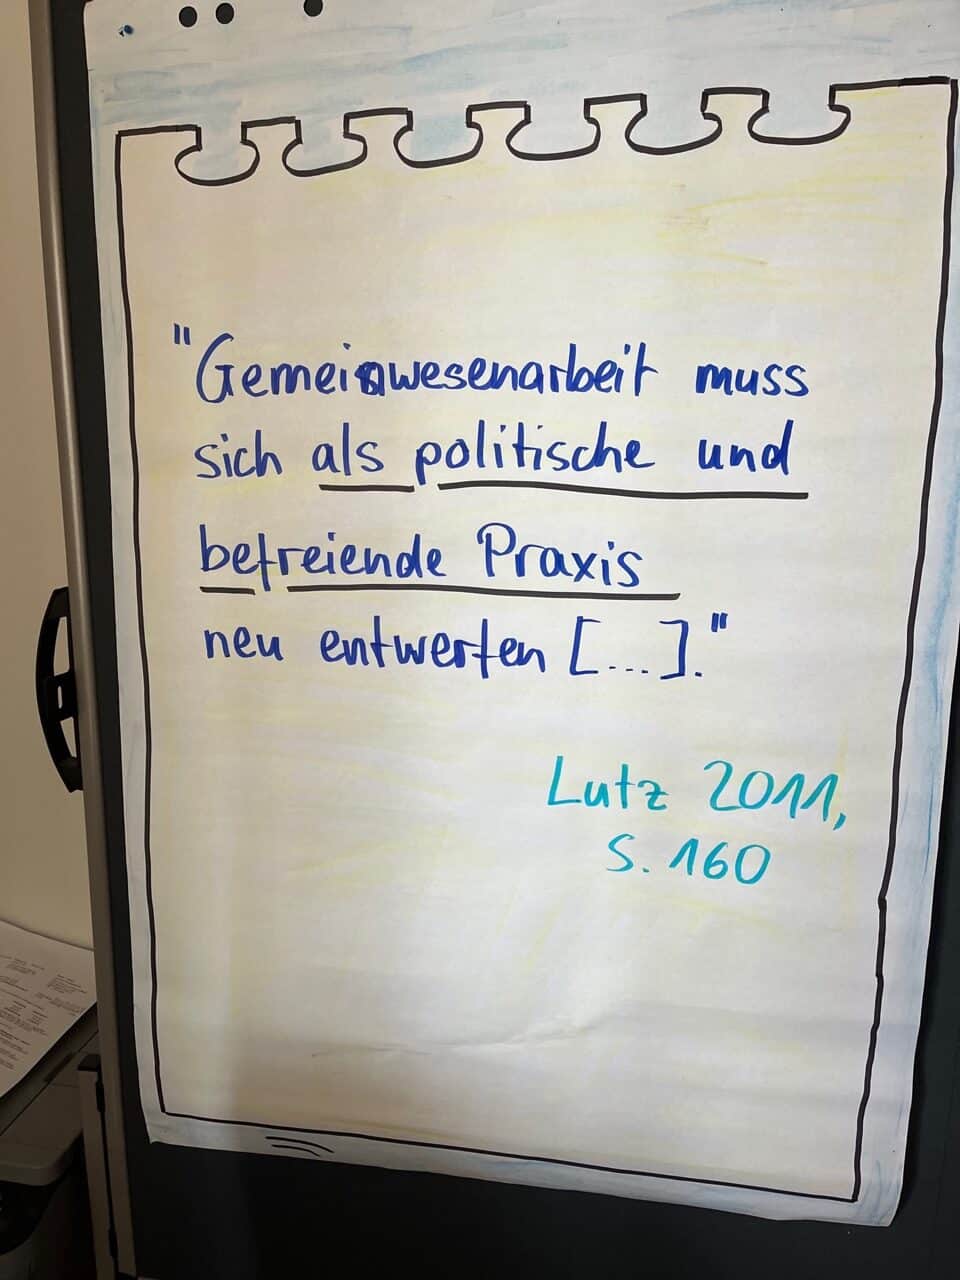 "Gemeinwesenarbeit muss
sich als politische und
befreiende Praxis
neu entwerfen [...]."
Lutz 2011,
S. 160